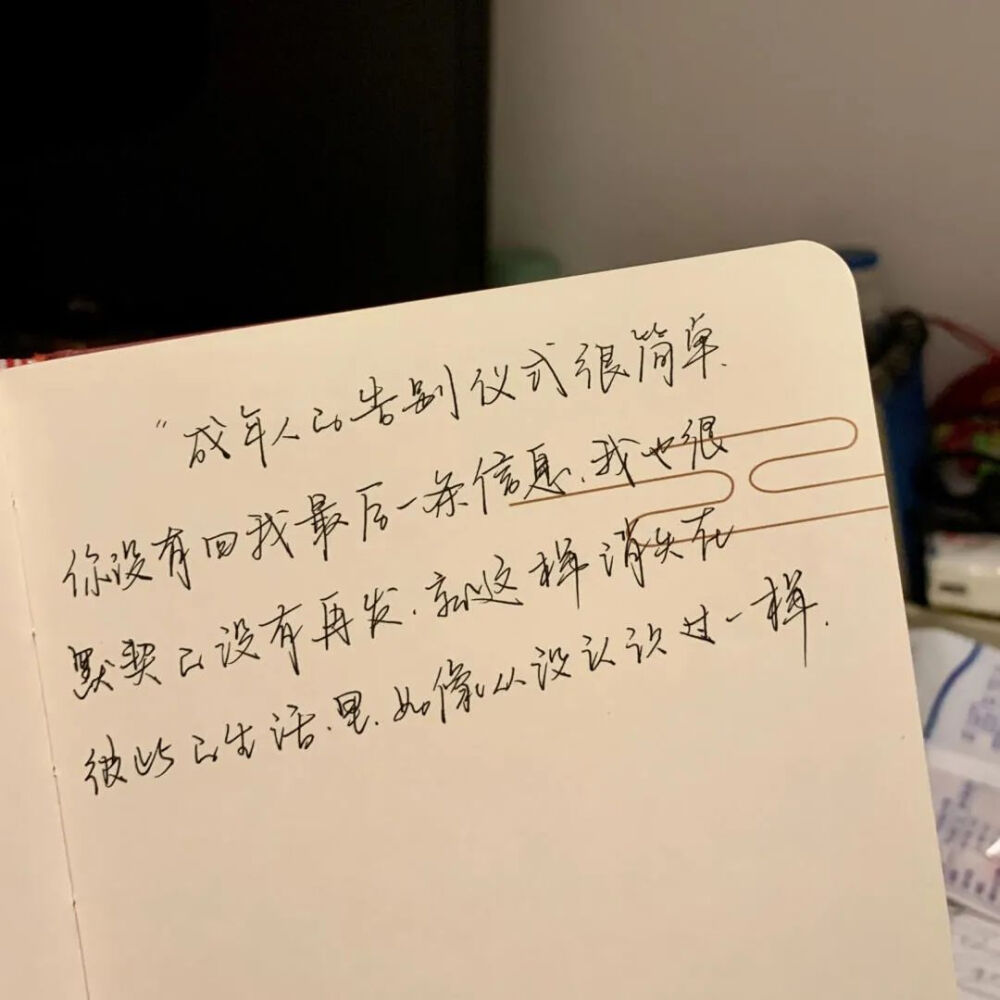 “成年人的告别仪式很简单.
你没有回我最后一条信息.我也很
默契的没有再发.就这样消失在
彼此的生活.里.如像从没认识过一样.